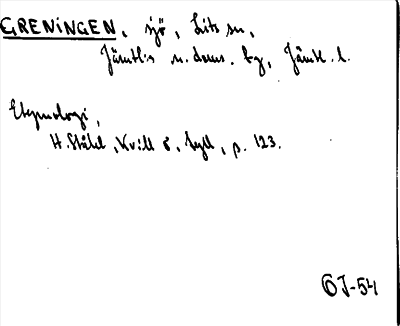 GRENINGEN, sjö, Lits sn,
Jämtl:s n. doms. bg, Jämtl. l.
Etymologi,
H. Ståhl, Kvill o, p. 123.
OJ-54